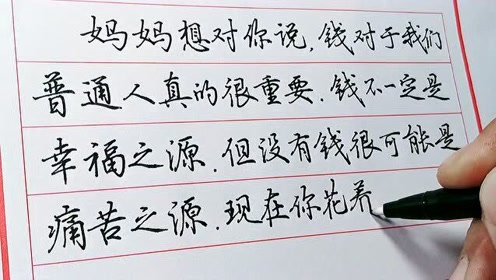 妈妈想对你说,钱对于我们
普通人真的很重要.钱不一定是
幸福之源.但没有钱很可能是
痛苦之源.现在你花养